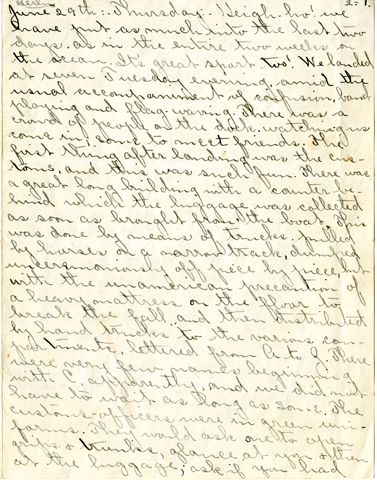 2-1.
June 29th: Thursday: Heigh-ho! we
have put as much into the last two
days, as in the entire two weeks on
the ocean. It's great sport too! We landed
at seven Tuesday evening, amid the
usual accompaniment of confusion, band
playing and flag waving. There was a
crowd of people on the dock, watching us
come in; some to meet friends. The
first thing after landing was the cus-
toms, and this was such fun. There was
a great long building with a counter be-
hind which the luggage was collected
as soon as brought from the boat. This
was done by means of trucks pulled
by horses on a narrow track, dumped
unceremoniously off piece by piece, but
with the unamerican precaution of
a heavy mattress on the floor to
break the fall, and then distributed
by hand trucks, to the various com-
partments, lettered from A to Z. There
were very few names beginning
with C, apparently, and we did not
have to wait as long as some. The
customs officers were in green uni-
forms. They would ask one to open
grips & trunks, glance at you & then
at the luggage, ask if you had